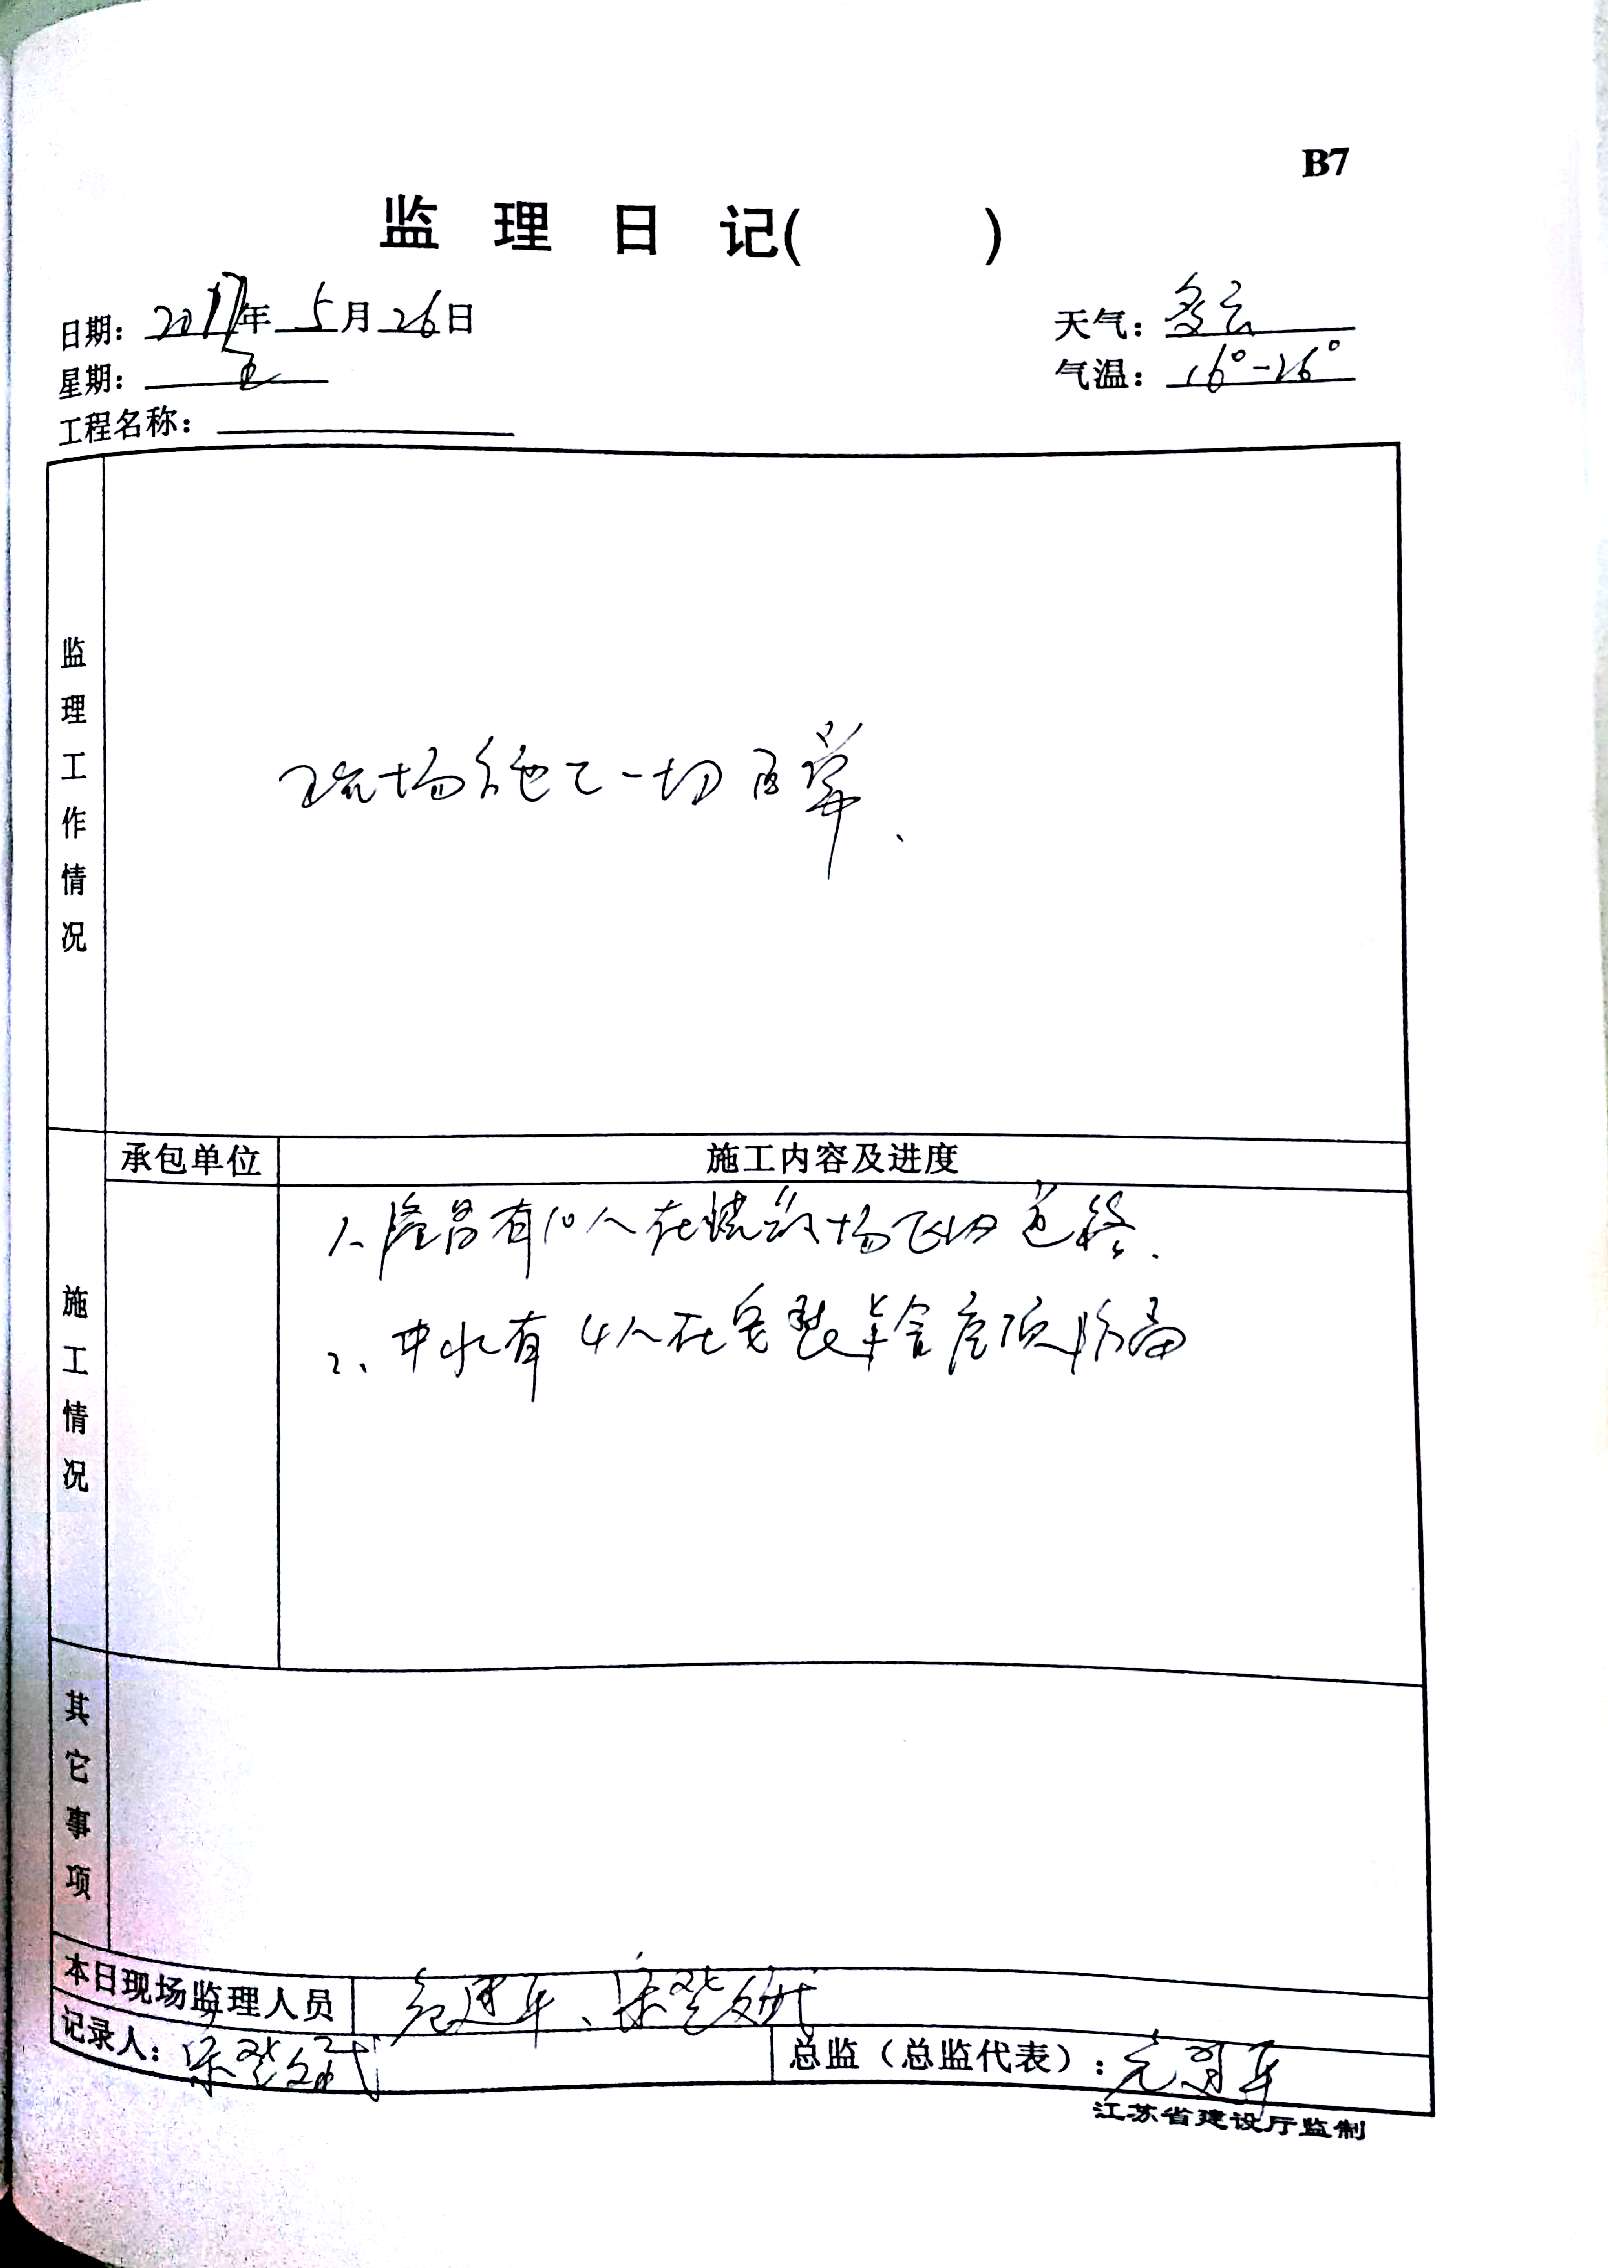 B7
监理日记( )
日期：2017年5月26日
天气：多云
星期：五
气温：16°-26°
工程名称：
监理工作情况
现场施工一切正常.
承包单位 施工内容及进度
施工情况
1、隆昌有10人在 场
2、中水有4人在安装 屋顶
其它事项
本日现场监理人员
记录人：
总监（总监代表）：
江苏省建设厅监制